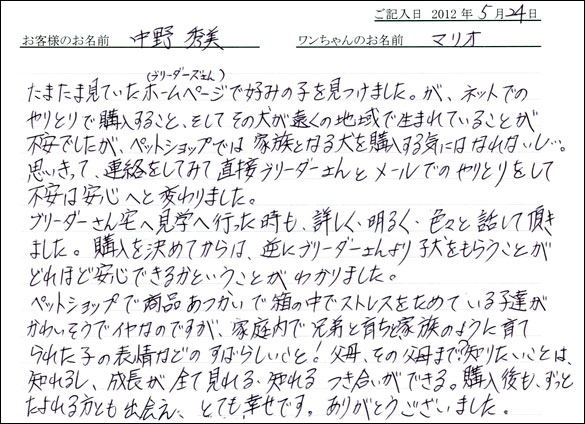 ご記入日 2012 年 5 月 24 日
お客様のお名前 中野 秀美 ワンちゃんのお名前 マリオ
(ブリーダーズさん)
たまたま見ていたホームページで好みの子を見つけました。が、ネットでの
やりとりで購入すること、そしてその犬が遠くの地域で生まれていることが
不安でしたが、ペットショップでは家族となる犬を購入する気にはなれないし…。
思いきって、連絡をしてみて直接ブリーダーさんとメールでのやりとりをして
不安は安心へと変わりました。
ブリーダーさん宅へ見学へ行った時も、詳しく、明るく、色々と話して頂き
ました。購入を決めてからは、逆にブリーダーさんより子犬をもらうことが
どれほど安心できるかということがわかりました。
ペットショップで商品あつかいで箱の中でストレスをためている子達が
かわいそうでイヤなのですが、家庭内で兄弟と育ちと家族のように育て
られた子の表情などのすばらしいこと!父母、その父母まで知りたいことは、
知れるし、成長が全て見れる、知れるつき合いができる。購入後も、ずっと
たよれる方とも出会え、とても幸せです。ありがとうございました。